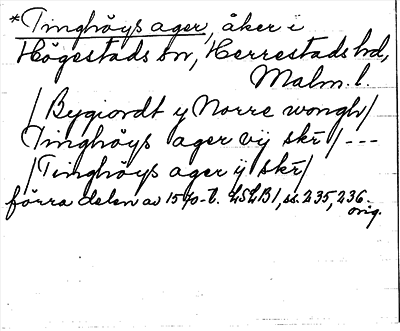 *Tinghöys ager, åker i
Högestads sn, Herrestads hd,
Malm. l.
/Bygiordt y Norre wongh/
Tinghöys ager vij skr̄ /---
/Tinghöys ager ij skr̄/
förra delen av 1570-t. LSLB1, ss. 235, 236.
orig.